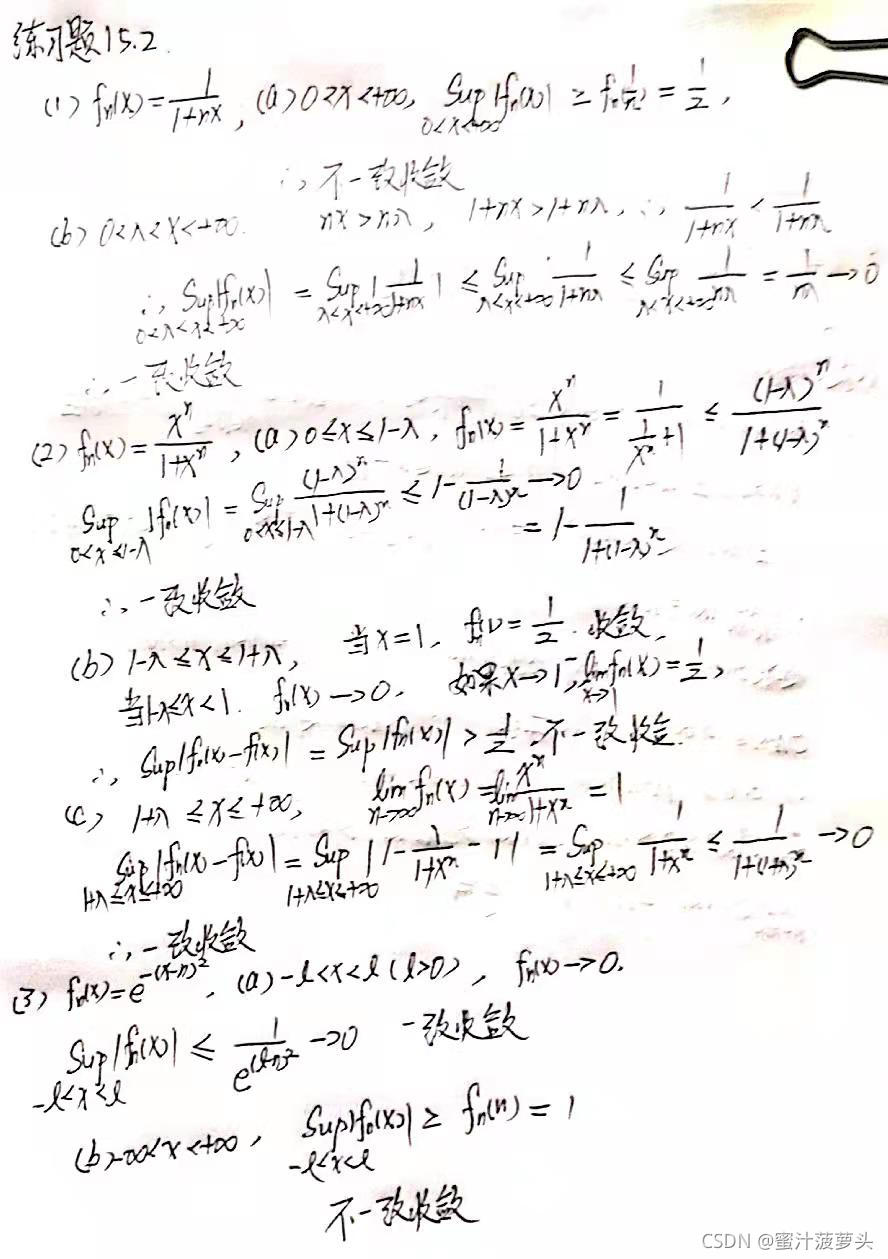 练习题15.2.
(1) fn(x)=1/(1+nx), (a) 0<x<+∞, Sup_{0<x<+∞}|fn(x)| ≥ fn(1/n) = 1/2,
∴ 不一致收敛
(b) 0<λ<x<+∞. nx>nλ, 1+nx>1+nλ, ∴ 1/(1+nx) < 1/(1+nλ)
∴ Sup_{0<λ<x<+∞}|fn(x)| = Sup_{λ<x<+∞}|1/(1+nx)| ≤ Sup_{λ<x<+∞} 1/(1+nλ) ≤ Sup_{λ<x<+∞} 1/(nλ) = 1/(nλ) → 0
∴ 一致收敛
(2) fn(x)=x^n/(1+x^n), (a) 0≤x≤1-λ, fn(x)=x^n/(1+x^n)=1/(1/x^n+1) ≤ (1-λ)^n/(1+(1-λ)^n)
Sup_{0<x≤1-λ}|fn(x)| = Sup_{0<x≤1-λ} (1-λ)^n/(1+(1-λ)^n) ≤ 1-1/(1-λ)^n → 0
= 1-1/(1+(1-λ)^n)
∴ 一致收敛
(b) 1-λ≤x≤1+λ, 当x=1, fn(1)=1/2. 收敛,
当1-λ≤x<1. fn(x)→0. 如果x→1^-, lim_{x→1} fn(x)=1/2,
∴ Sup|fn(x)-f(x)| = Sup|fn(x)| > 1/2 不一致收敛.
(c) 1+λ≤x≤+∞, lim_{n→∞} fn(x)=lim_{n→∞} x^n/(1+x^n) = 1
Sup_{1+λ≤x≤+∞}|fn(x)-f(x)| = Sup_{1+λ≤x≤+∞}|1-1/(1+x^n)-1| = Sup_{1+λ≤x≤+∞} 1/(1+x^n) ≤ 1/(1+(1+λ)^n) → 0
∴ 一致收敛
(3) fn(x)=e^{-(x-n)^2}, (a) -l<x<l (l>0), fn(x)→0.
Sup_{-l<x<l}|fn(x)| ≤ 1/e^{(l-n)^2} → 0 一致收敛
(b) -∞<x<+∞, Sup_{-l<x<l}|fn(x)| ≥ fn(n) = 1
不一致收敛
CSDN @蜜汁菠萝头